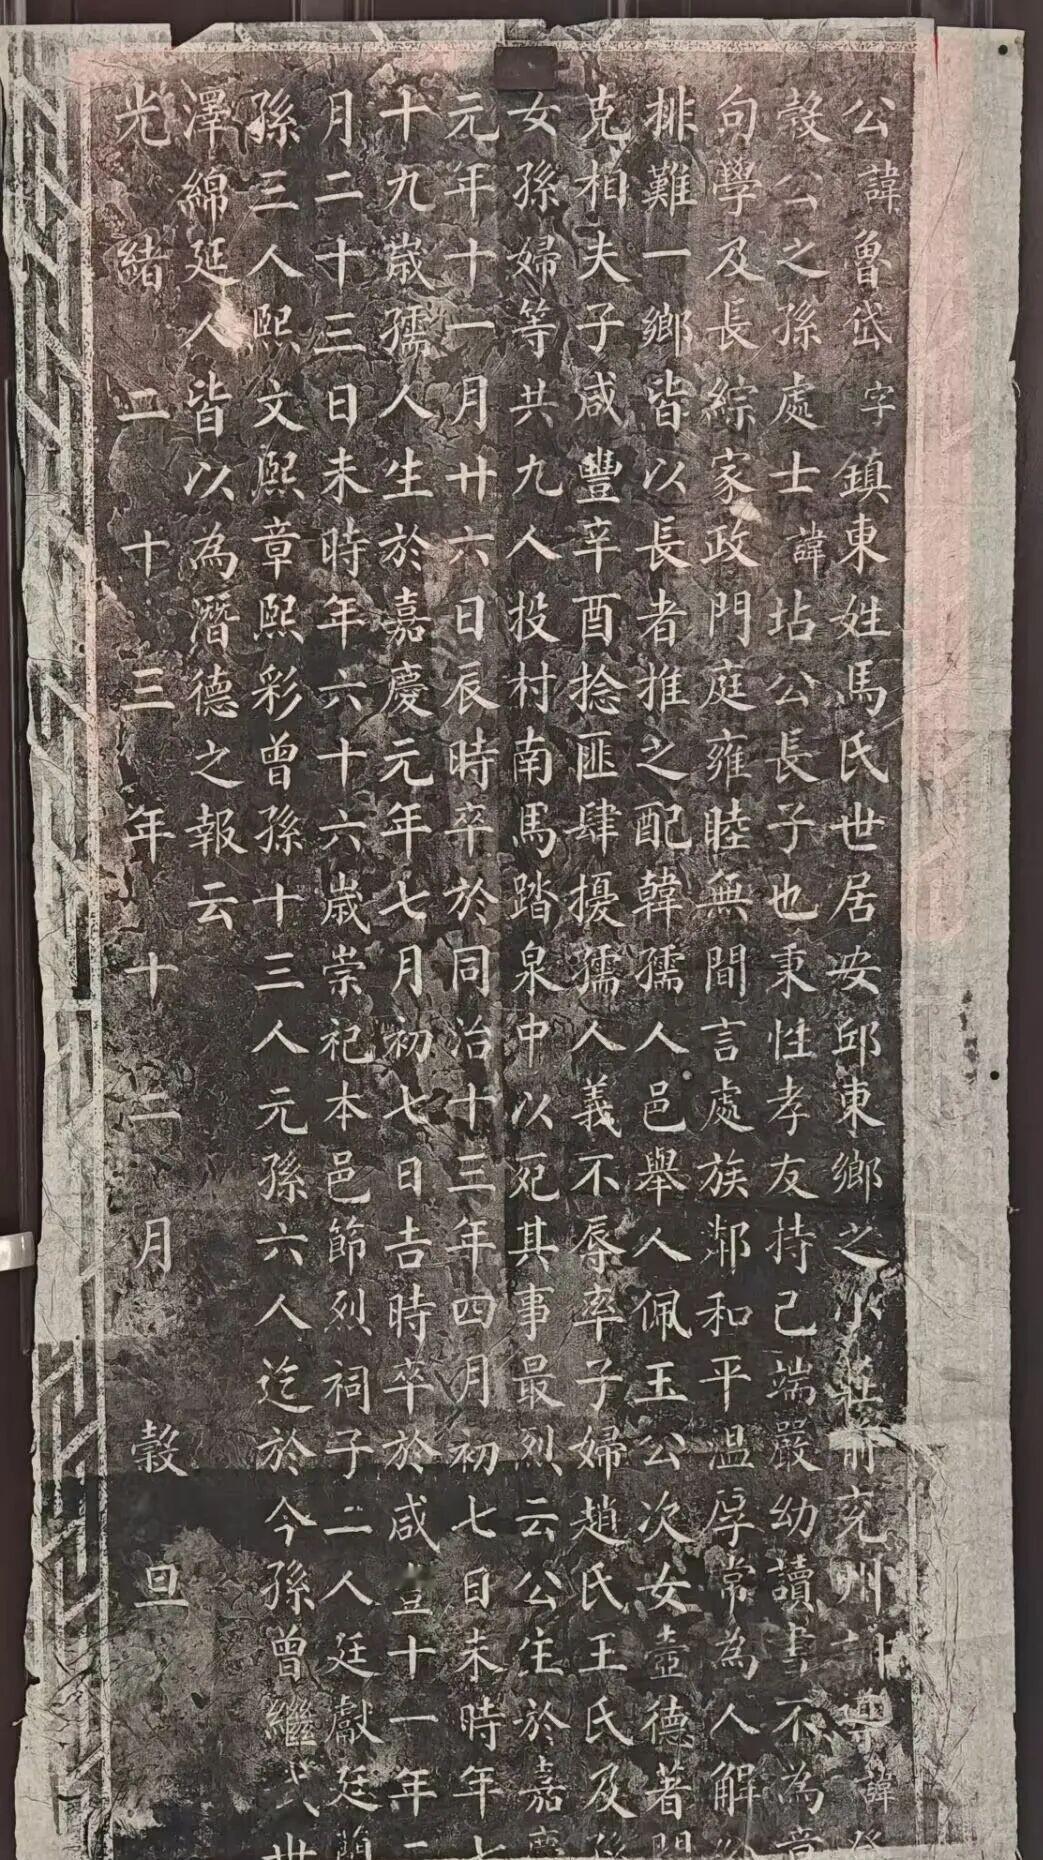 公諱魯岱字鎮東姓馬氏世居安邱東鄉之小莊前兗州訓導諱登
穀公之孫處士諱坫公長子也秉性孝友持己端嚴幼讀書不為章
句學及長綜家政門庭雍睦無間言處族鄰和平温厚常為人解紛
排難一鄉皆以長者推之配韓孺人邑舉人佩玉公次女壼德著聞
克相夫子咸豐辛酉捻匪肆擾孺人義不辱率子婦趙氏王氏及孫
女孫婦等共九人投村南馬踏泉中以死其事最烈云公生於嘉慶
元年十一月廿六日辰時卒於同治十三年四月初七日未時年七
十九歲孺人生於嘉慶元年七月初七日吉時卒於咸豐十一年二
月二十三日未時年六十六歲崇祀本邑節烈祠子二人廷獻廷蘭
孫三人熙文熙章熙彩曾孫十三人元孫六人迄於今孫曾繼武世
澤綿延人皆以為潛德之報云
光緒二十三年十二月穀旦